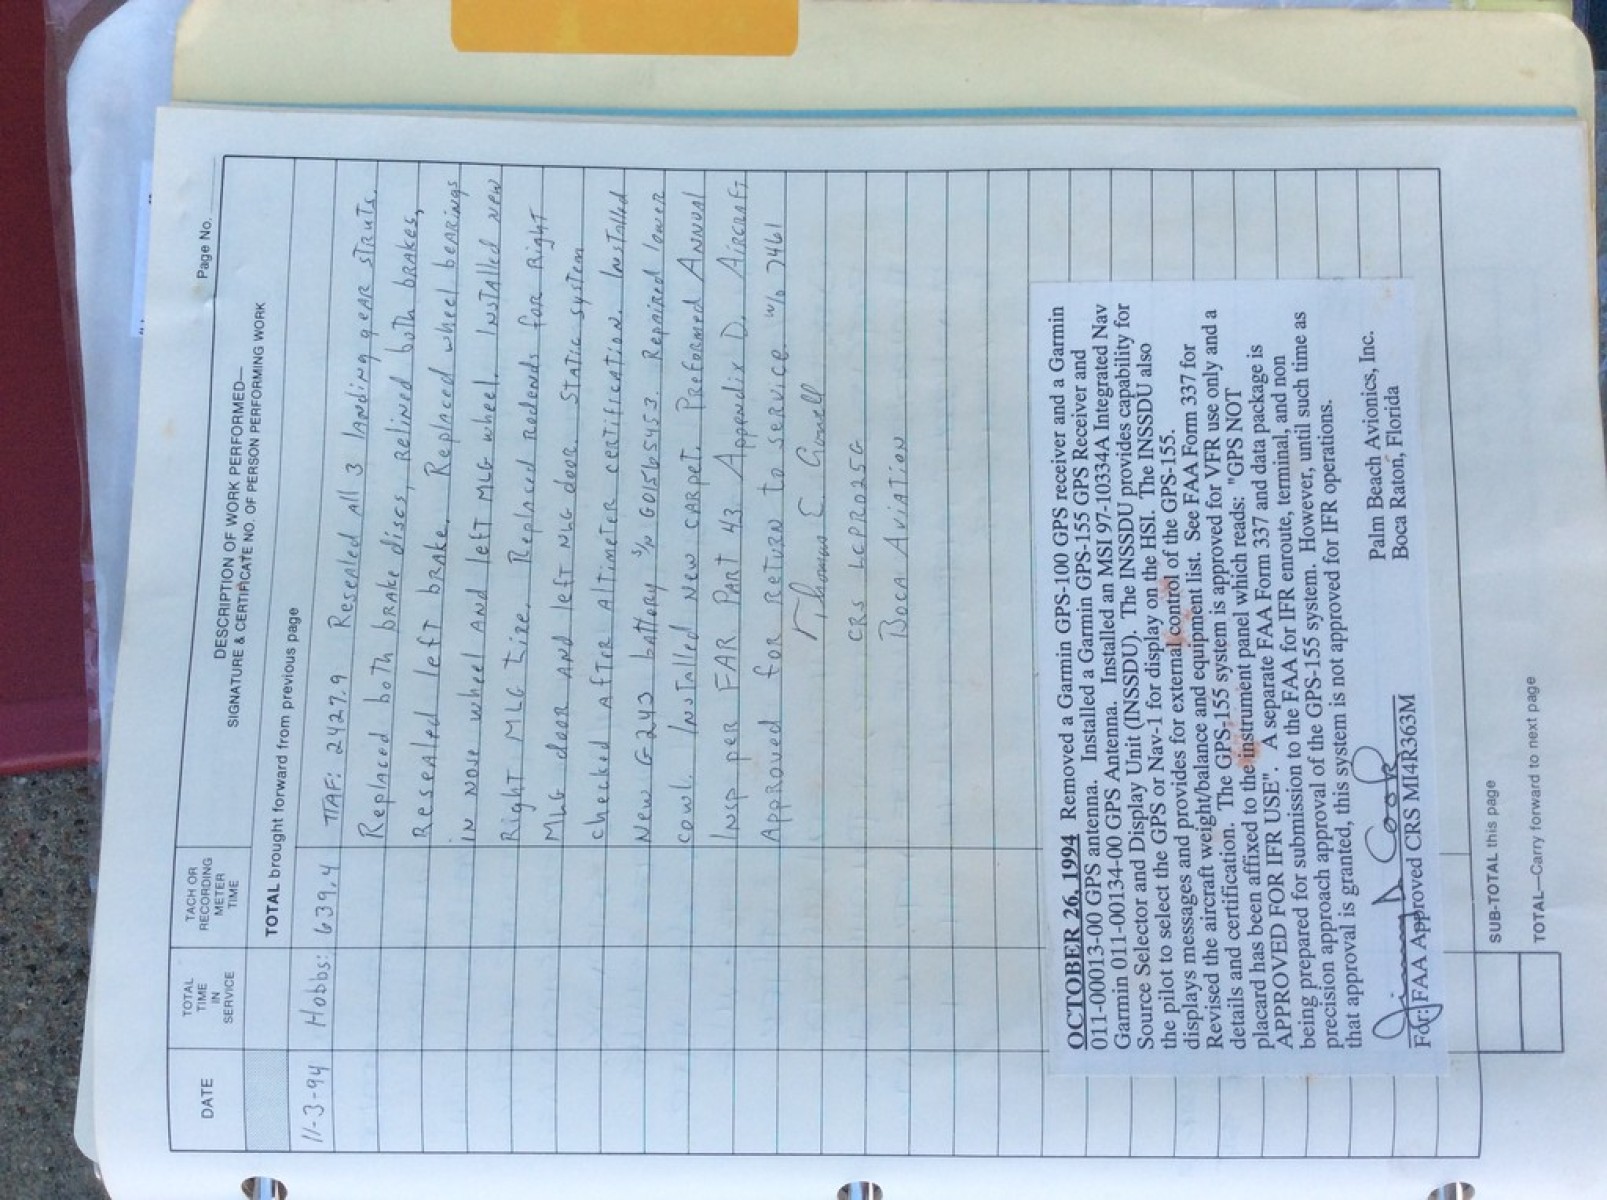 Page No.
DESCRIPTION OF WORK PERFORMED—
SIGNATURE & CERTIFICATE NO. OF PERSON PERFORMING WORK
TACH OR
RECORDING
METER
TIME
TOTAL
TIME
IN
SERVICE
DATE
TOTAL brought forward from previous page
11-3-94 Hobbs: 639.4 TTAF: 2427.9 Resealed All 3 landing gear struts.
Replaced both brake discs, relined both brakes,
Resealed left brake. Replaced wheel bearings
in nose wheel and left MLG wheel. Installed new
Right MLG tire. Replaced rodends for Right
MLG door and left NLG door. Static system
checked after altimeter certification. Installed
New G-243 battery S/N G01565453. Repaired lower
cowl. Installed new carpet. Preformed Annual
Insp per FAR Part 43 Appendix D. Aircraft
Approved for return to service w/o 7461
Thomas E.
CRS LCPR025G
Boca Aviation
OCTOBER 26, 1994 Removed a Garmin GPS-100 GPS receiver and a Garmin
011-00013-00 GPS antenna. Installed a Garmin GPS-155 GPS Receiver and
Garmin 011-00134-00 GPS Antenna. Installed an MSI 97-10334A Integrated Nav
Source Selector and Display Unit (INSSDU). The INSSDU provides capability for
the pilot to select the GPS or Nav-1 for display on the HSI. The INSSDU also
displays messages and provides for external control of the GPS-155.
Revised the aircraft weight/balance and equipment list. See FAA Form 337 for
details and certification. The GPS-155 system is approved for VFR use only and a
placard has been affixed to the instrument panel which reads: "GPS NOT
APPROVED FOR IFR USE". A separate FAA Form 337 and data package is
being prepared for submission to the FAA for IFR enroute, terminal, and non
precision approach approval of the GPS-155 system. However, until such time as
that approval is granted, this system is not approved for IFR operations.
Palm Beach Avionics, Inc.
Boca Raton, Florida
For: FAA Approved CRS MI4R363M
SUB-TOTAL this page
TOTAL—Carry forward to next page